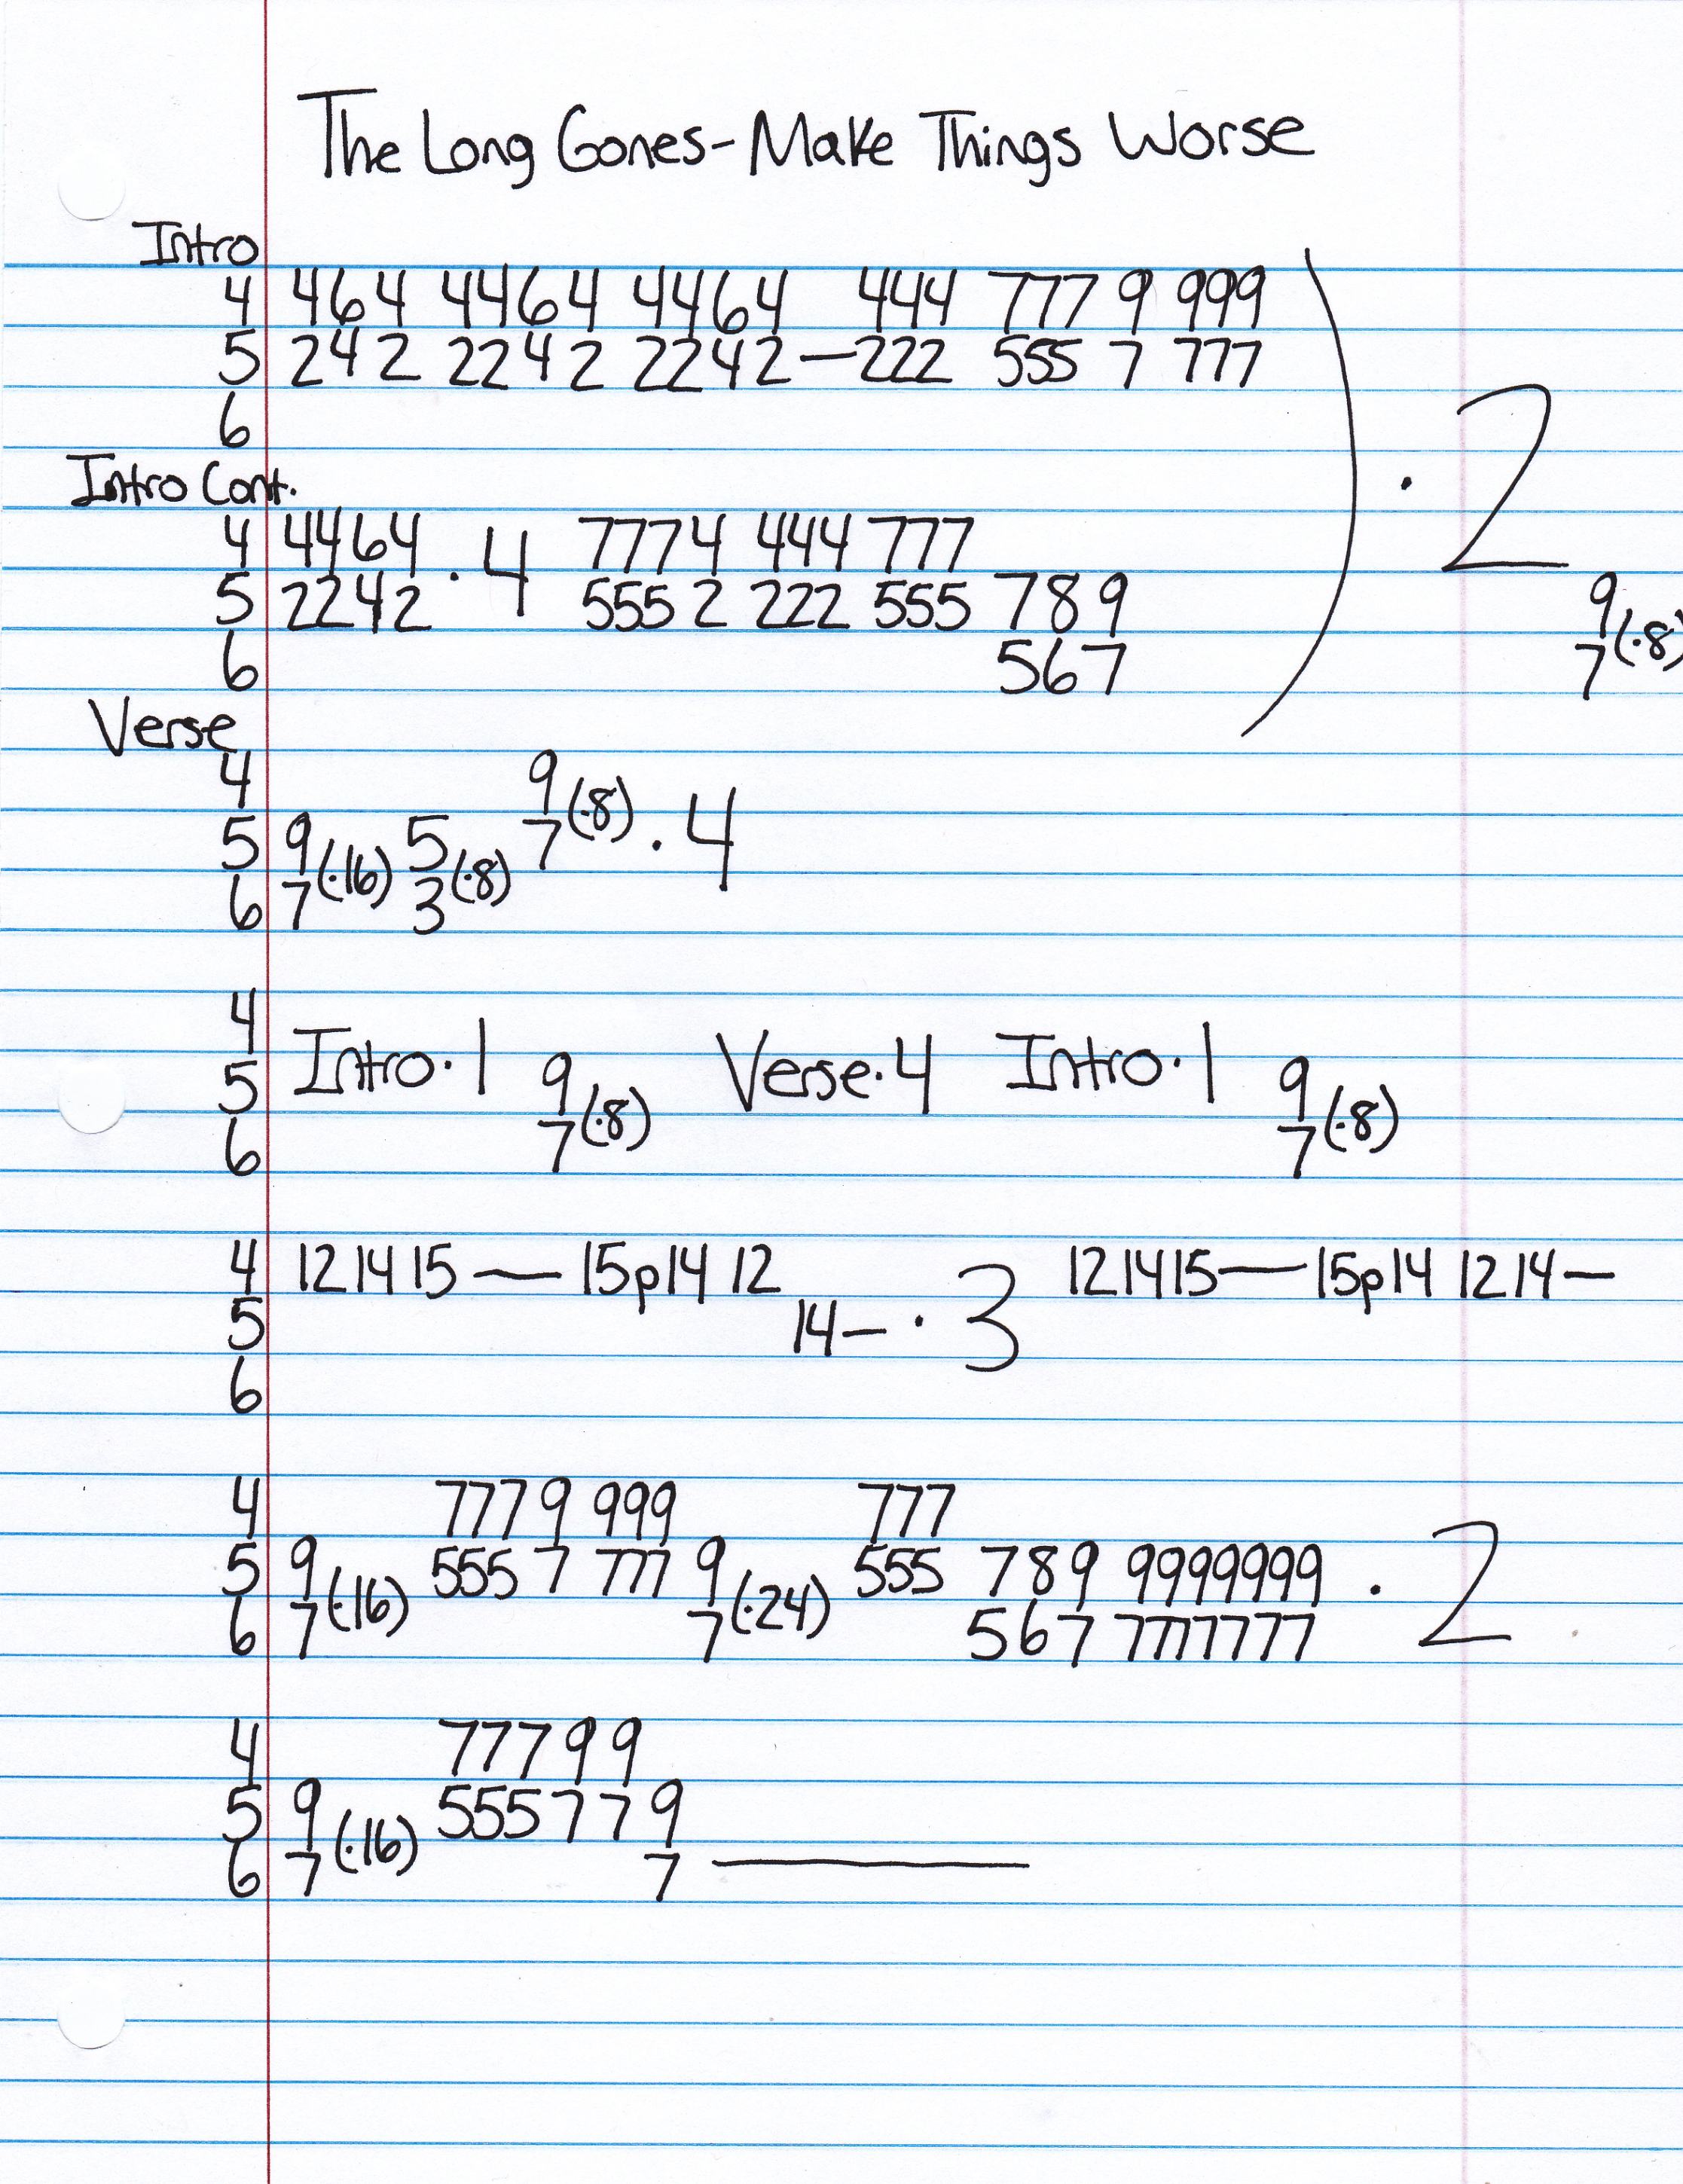 The Long Gones - Make Things Worse
Intro
4 464 4464 4464 444 777 9 999
5 242 2242 2242 — 222 555 7 777
6
) · 2
Intro Cont.
4 4464 · 4 7774 444 777
5 2242 555 2 222 555 789
6 567
9
7 (·8)
Verse
4 9
5 9 5 7 (·8) · 4
6 7 (·16) 3 (·8)
4
5 Intro · 1 9 Verse · 4 Intro · 1 9
6 7 (·8) 7 (·8)
4 12 14 15 — 15p14 12 12 14 15 — 15p14 12 14 —
5 14 — · 3
6
4 7779 999 777
5 9 555 7 777 9 555 789 9999999 · 2
6 7 (·16) 7 (·24) 567 7777777
4 77799
5 9 55577 9
6 7 (·16) 7 ———